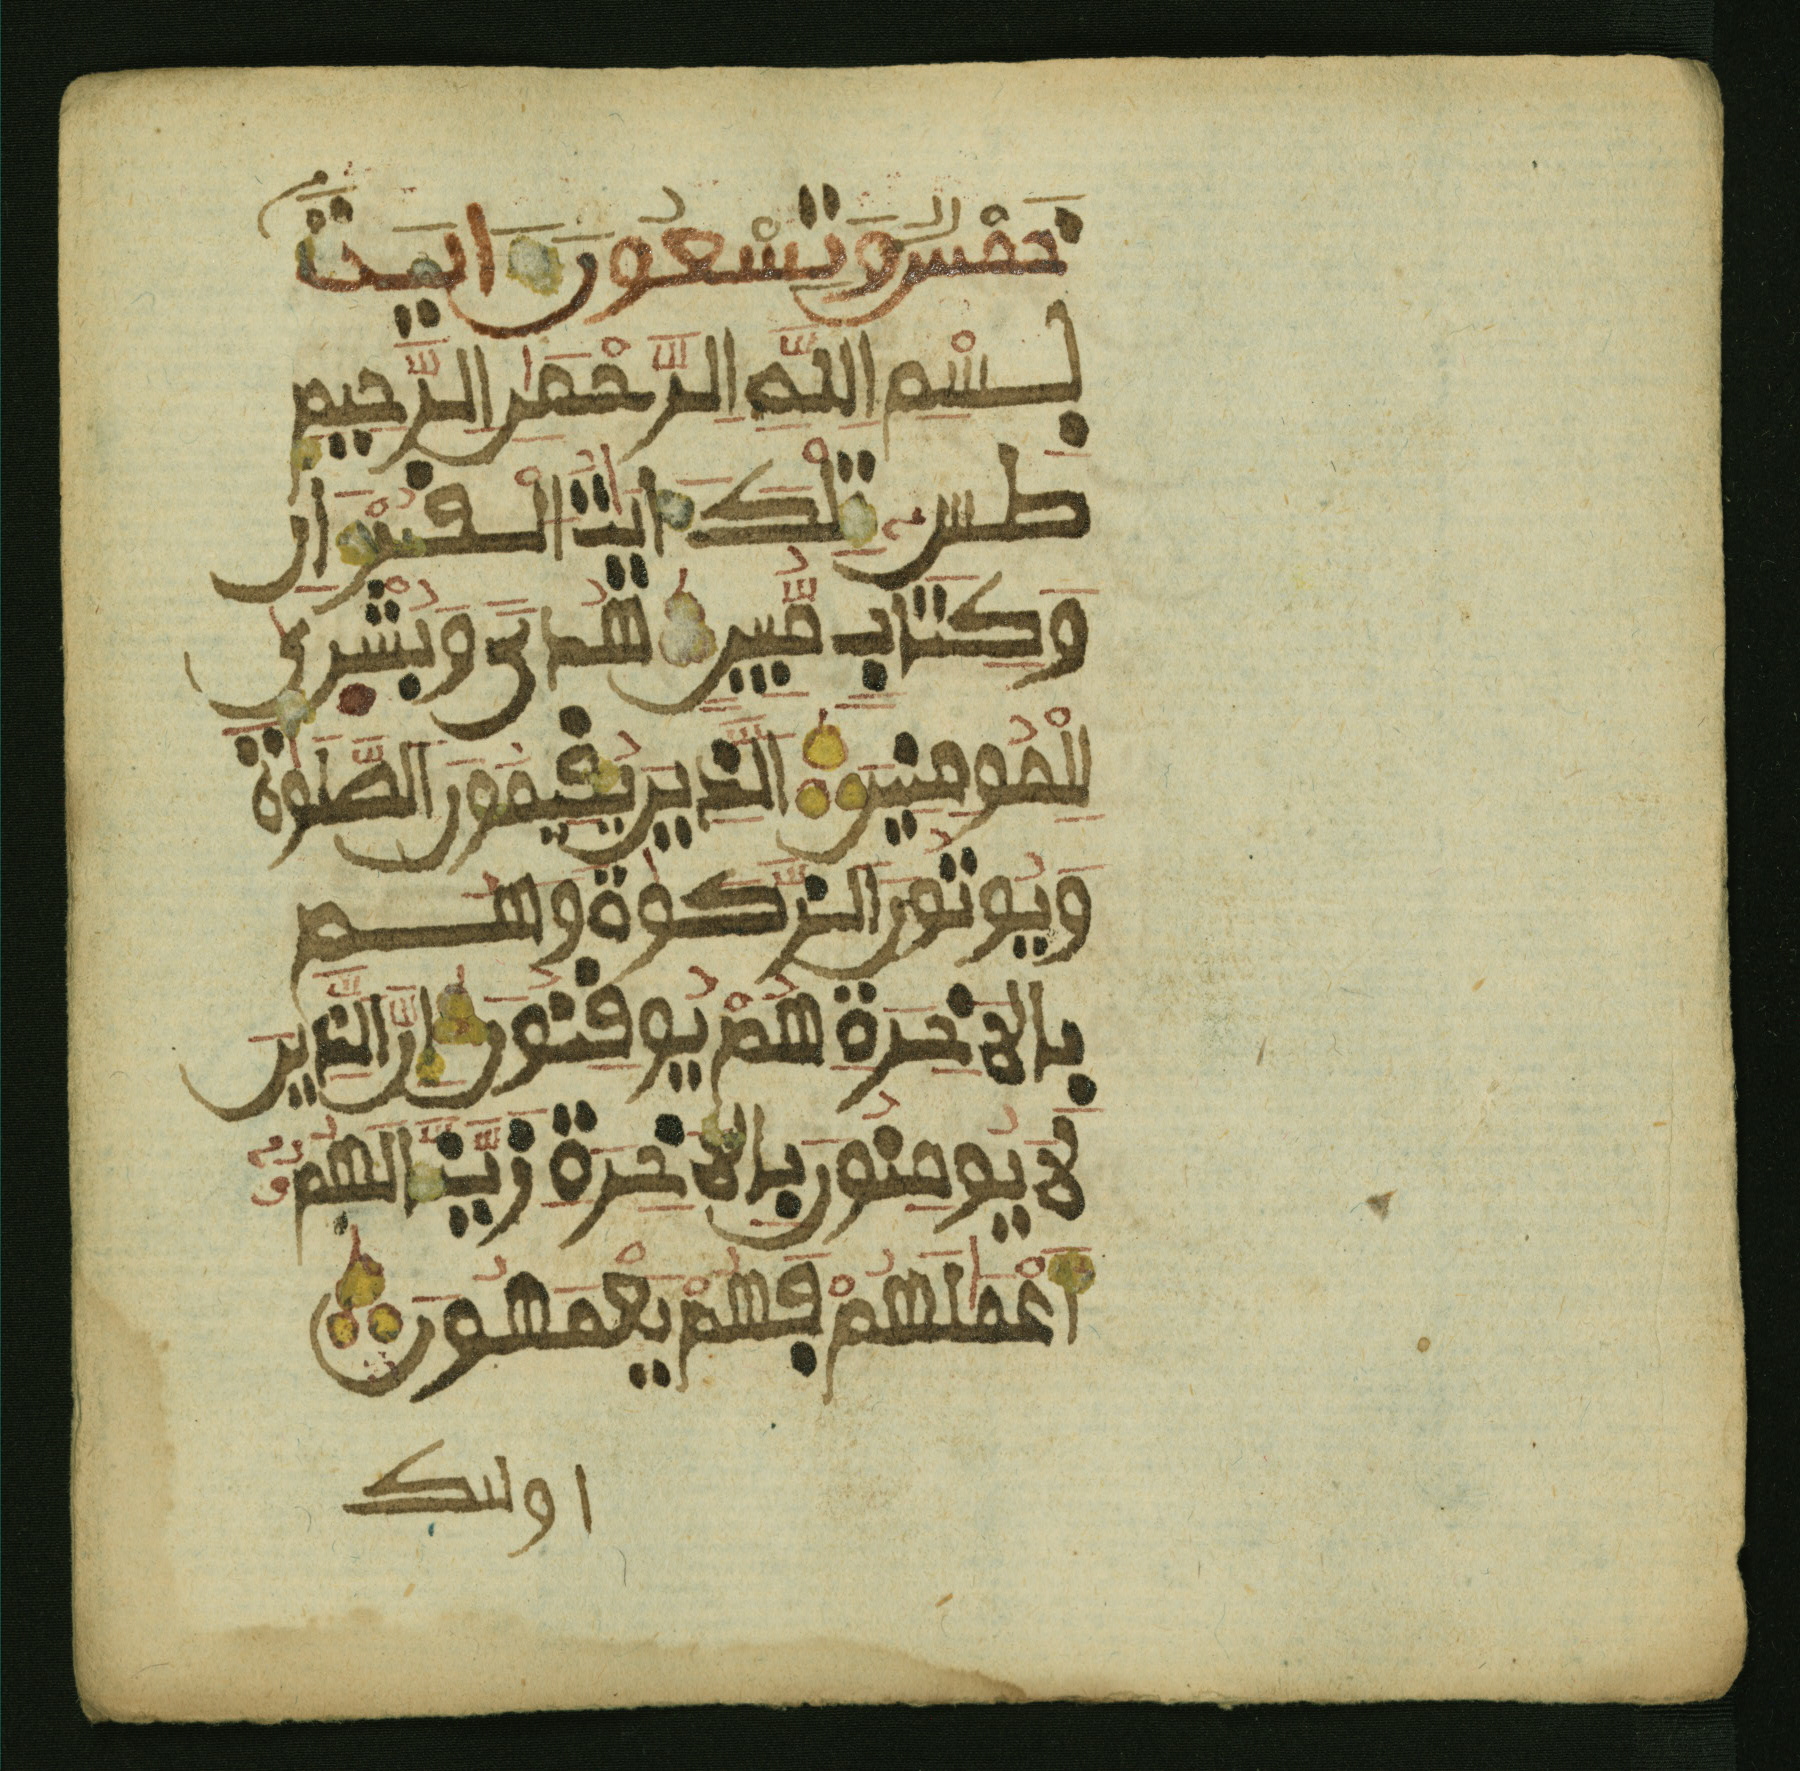 خَمْسٌ وَتِسْعُونَ ايَةً
بِسْمِ اللَّهِ الرَّحْمَٰنِ الرَّحِيمِ
طَسِ تِلْكَ ايَٰتُ الْقُرْءَانِ
وَكِتَابٍ مُّبِينٍ هُدىً وَبُشْرَىٰ
لِلْمُومِنِينَ الَّذِينَ يُقِيمُونَ الصَّلَوٰةَ
وَيُوتُونَ الزَّكَوٰةَ وَهُم
بِالاخِرَةِ هُمْ يُوقِنُونَ إِنَّ الَّذِينَ
لَا يُومِنُونَ بِالاخِرَةِ زَيَّنَّا لَهُمُ
أَعْمَٰلَهُمْ فَهُمْ يَعْمَهُونَ
اولىك